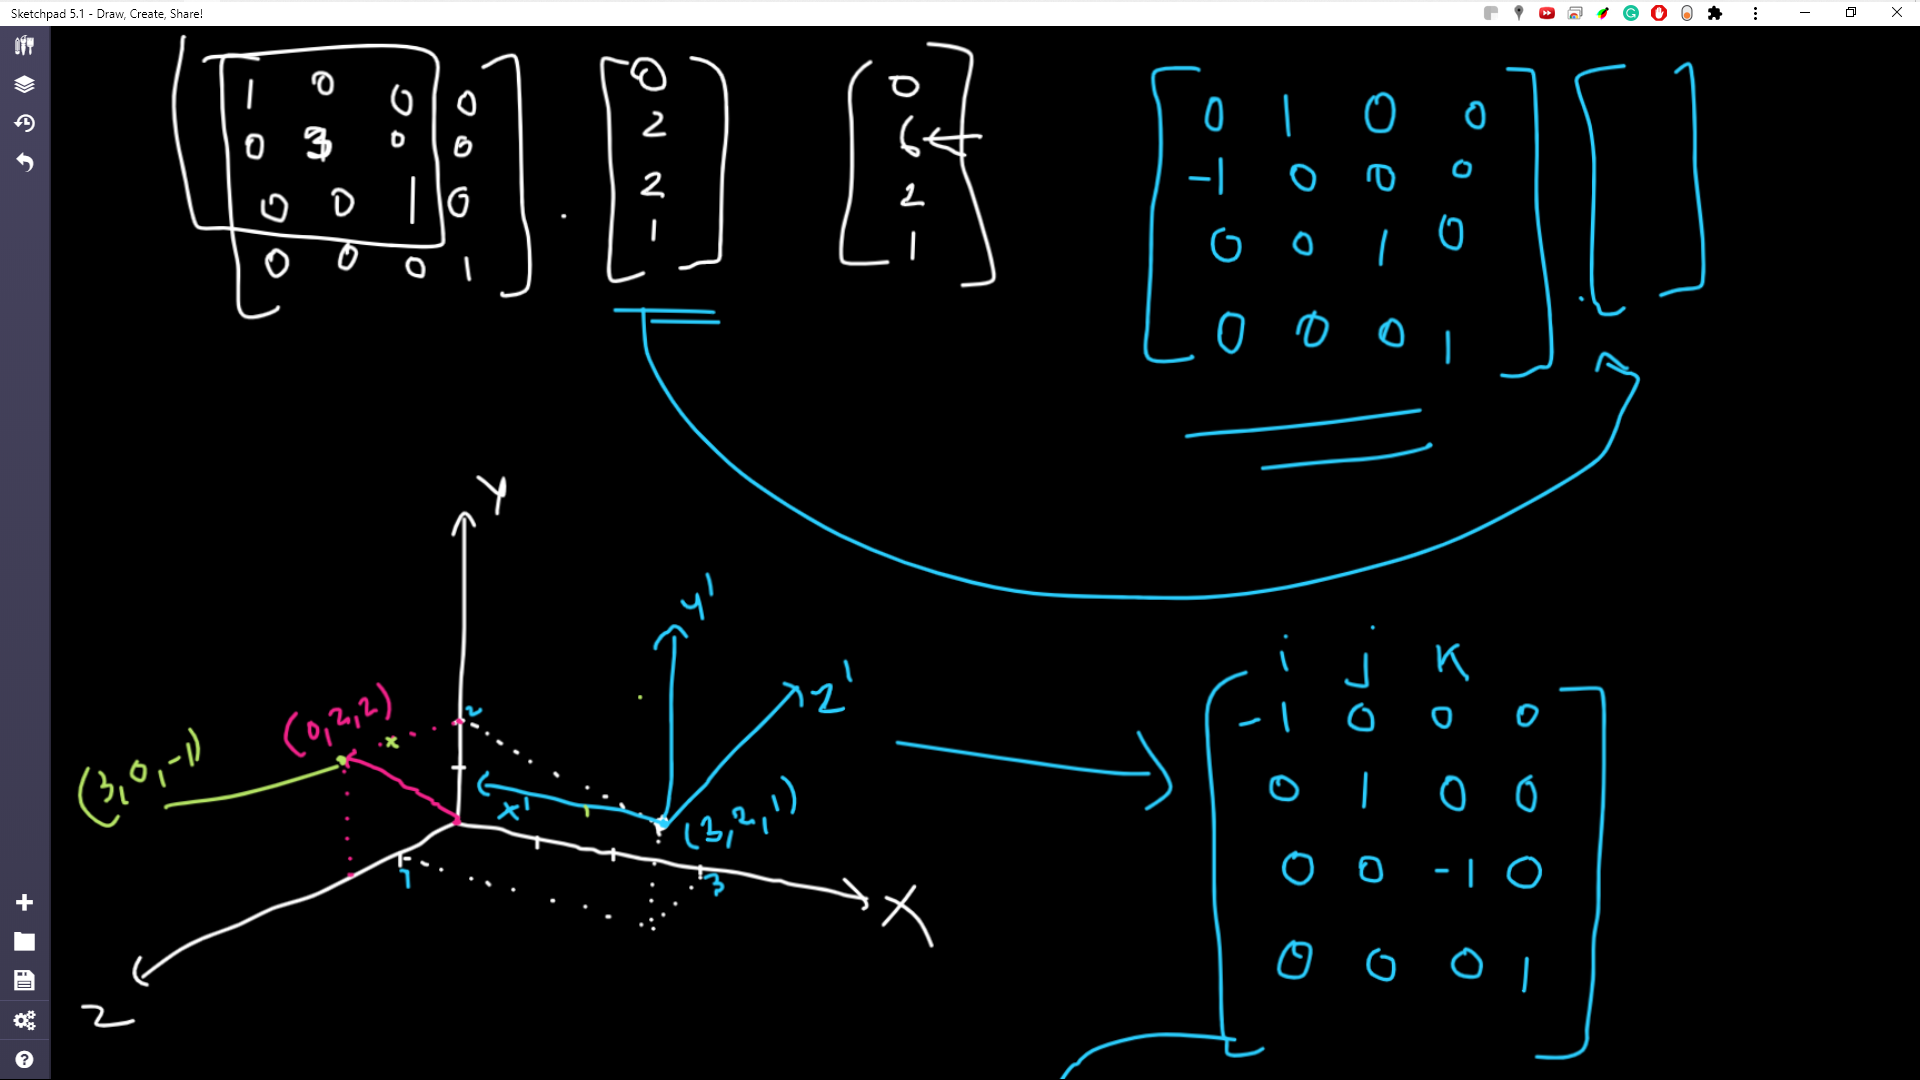 Sketchpad 5.1 - Draw, Create, Share!
1 0 0 0
0 3 0 0
0 0 1 0
0 0 0 1
.
0
2
2
1
0
6
2
1
0 1 0 0
-1 0 0 0
0 0 1 0
0 0 0 1
Y
y'
z'
2
(0,2,2)
x
(3,0,-1)
x'
1
(3,2,1)
1
3
X
Z
i j K
-1 0 0 0
0 1 0 0
0 0 -1 0
0 0 0 1